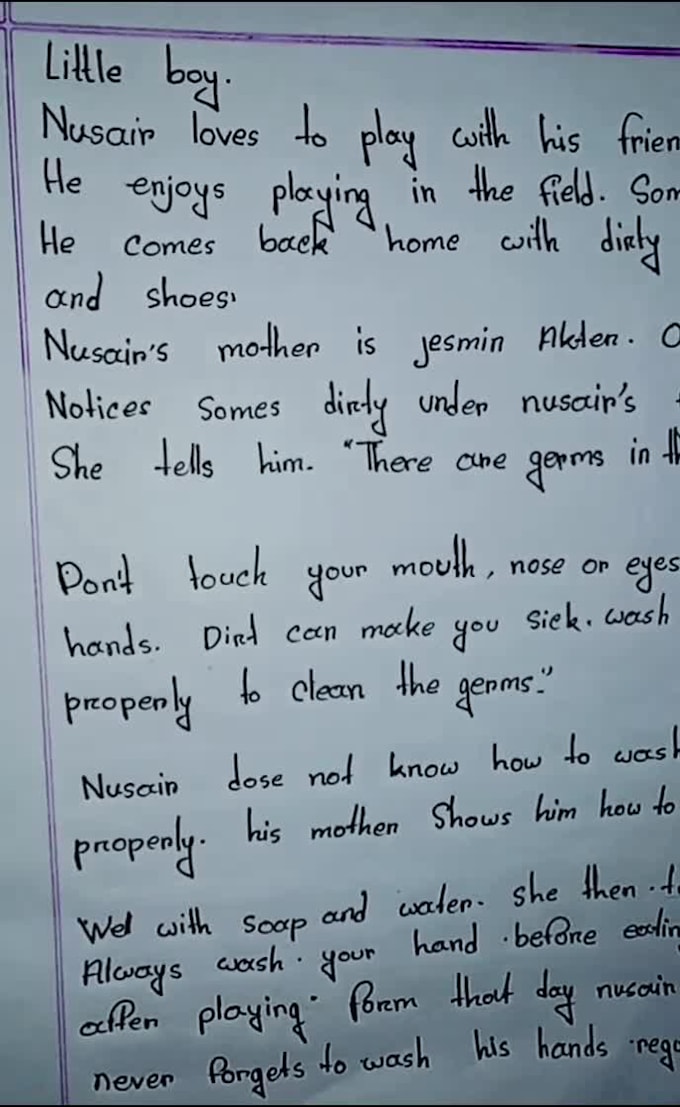 Little boy.
Nusair loves to play with his frien
He enjoys playing in the field. Som
He comes back home with dirty
and shoes.
Nusair's mother is jesmin Akter. O
Notices Somes dirty under nusair's
She tells him. "There are germs in th
Don't touch your mouth, nose or eyes
hands. Dirt can make you sick. wash
properly to clean the germs."
Nusair dose not know how to wash
properly. his mother Shows him how to
Wet with soap and water. she then t
Always wash your hand before eatin
after playing" form that day nusair
never forgets to wash his hands rega